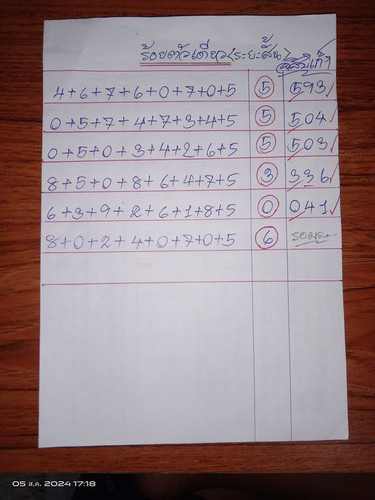 ร้อยตัวเดียว(ระยะสั้น)
4+6+7+6+0+7+0+5 5 593
0+5+7+4+7+3+4+5 5 504
0+5+0+3+4+2+6+5 5 503
8+5+0+8+6+4+7+5 3 336
6+3+9+2+6+1+8+5 0 041
8+0+2+4+0+7+0+5 6 รอผล
05 ส.ค. 2024 17:18